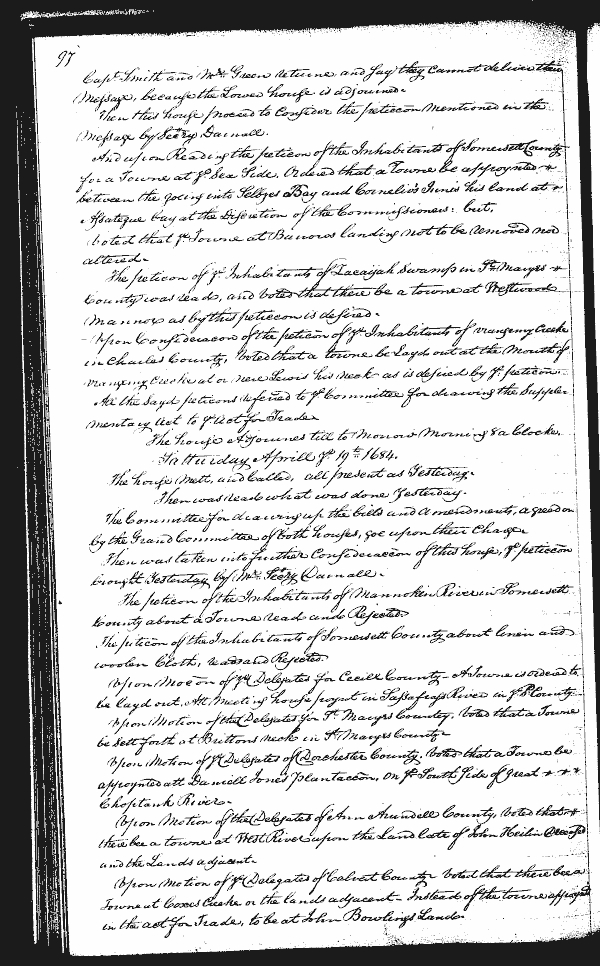 97
Capt. Smith and Mr. Green returne and say they cannot deliver their
Message, because the Lower house is adjourned.
Then this house proceed to Consider the peticon mentioned in the
Message by Secry Darnall.
And upon Reading the peticon of the Inhabitants of Somersett County
for a Towne at ye Sea Side. Ordered that a Towne be appoynted +
between the going into Selbyes Bay and Cornelius Innis his land at +
Assateque bay at the Discretion of the Commissioners: but,
Voted that ye Towne at Barrows landing not to be removed nor
altered.
The peticon of ye Inhabitants of Zacaijah Swamp in St. Maryes +
County was read, and Voted that there be a towne at Westwood
Mannor as by this peticcon is desired.
Upon Consideracon of the peticon of ye Inhabitants of vrangemy Creeke
in Charles County, Voted that a towne be Layd out at the Mouth of
vrangemy Creeke at or nere Lewis his neck as is desired by ye peticon.
All the Sayd peticons referred to ye Committee for drawing the Supple-
mentary Act to ye Act for Trade.
The house Adjournes till to Morrow Morning 8 a Clocke.
Satturday Aprill ye 19th 1684.
The house Mett, and Called, all present as Yesterday.
Then was read what was done Yesterday.
The Committee for drawing up the bills and Amendments, agreed on
by the Grand Committee of both houses, goe upon their Charge.
Then was taken into further Consideracon of this house, ye peticcon
brought Yesterday by Mr. Secry Darnall.
The peticon of the Inhabitants of Mannokin River in Somersett
County about a Towne read and Rejected.
The peticon of the Inhabitants of Somersett County about linen and
woolen Cloth, read and Rejected.
Upon Mocon of ye Delegates for Cecill County A Towne is ordered to
be layd out, Att Meeting house poynt in Sassafrass River in ye sd County
Upon Motion of the Delegates for St. Maryes County, Voted that a Towne
be sett forth at Brittons neck in St. Maryes County.
Upon Motion of ye Delegates of Dorchester County, Voted that a Towne be
appoynted att Daniell Jones plantaccon, on ye South Side of great + + +
Choptank River.
Upon Motion of the Delegates of Ann Arundell County, Voted that +
there be a towne at West River upon the Land late of John Heilin Deceased
and the Lands adjacent.
Upon Motion of ye Delegates of Calvert County Voted that there be a
Towne at Coxes Creeke or the lands adjacent - Instead of the towne appoynted
in the act for Trade, to be at John Bowlings Land.